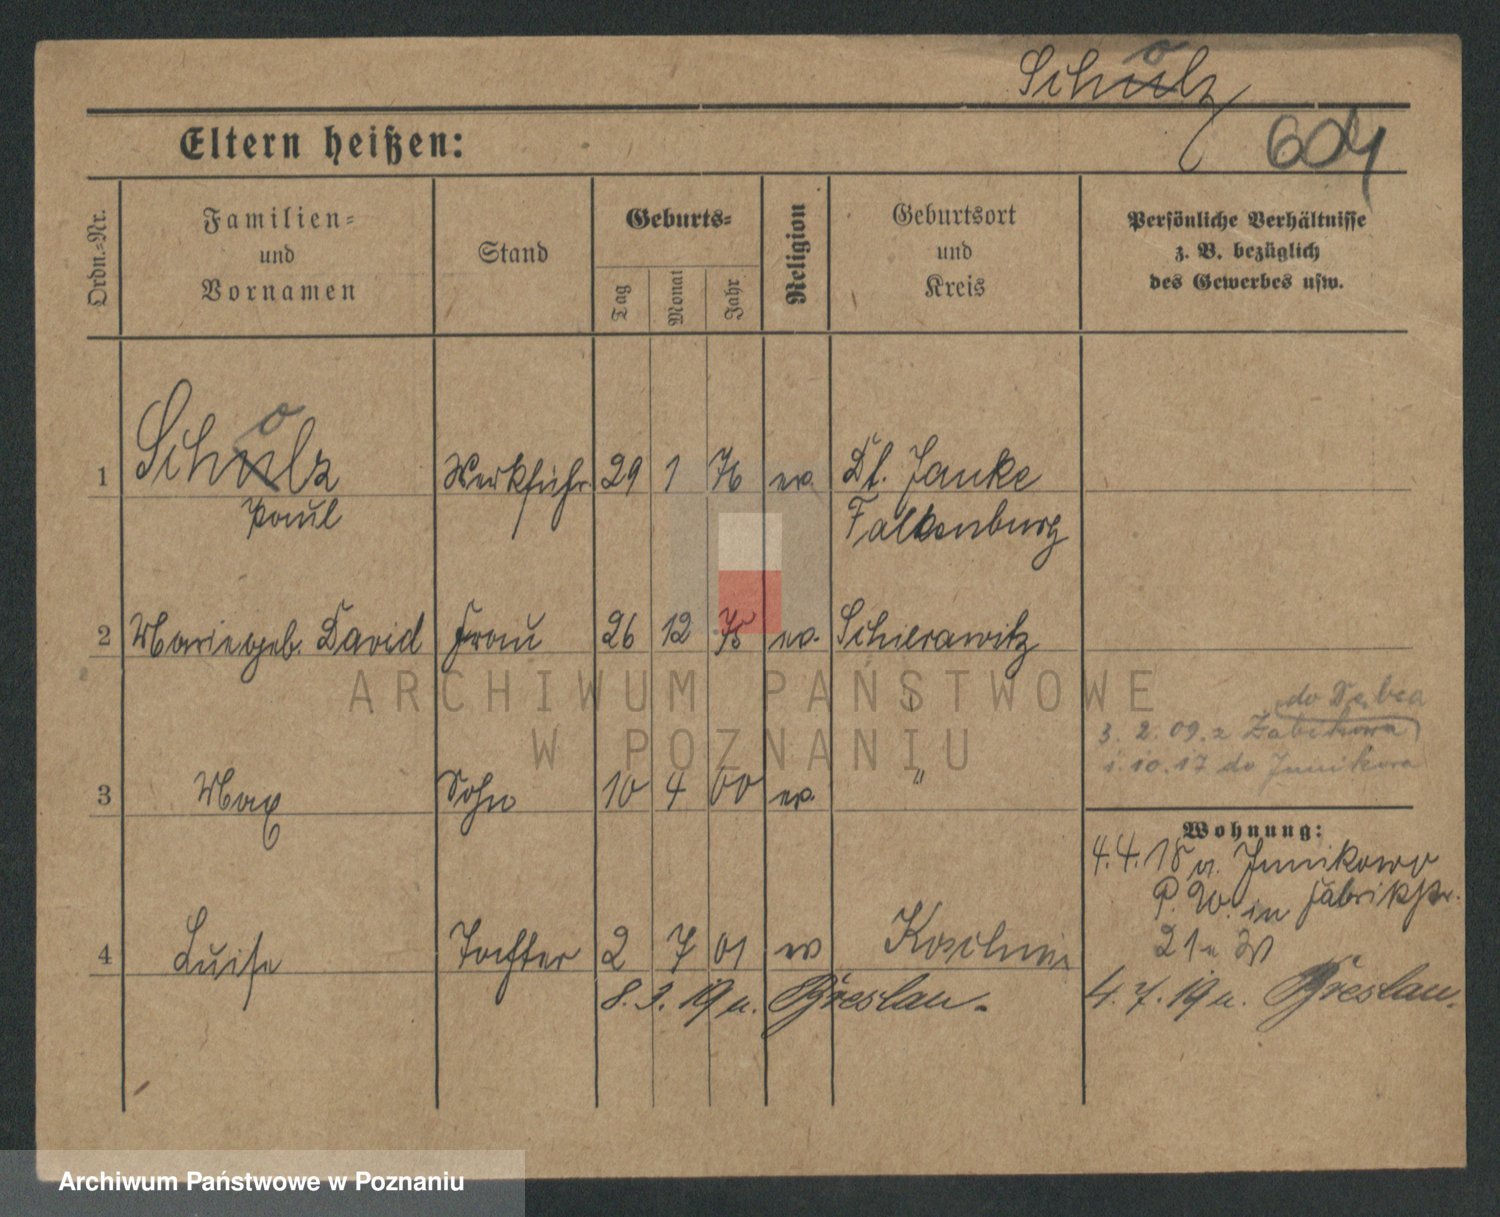 Scholz
604
Eltern heißen:
Ordn.-Nr.
Familien-
und
Vornamen
Stand
Geburts-
Tag
Monat
Jahr
Religion
Geburtsort
und
Kreis
Persönliche Verhältnisse
z. B. bezüglich
des Gewerbes usw.
1 Scholz Werkführ. 29 1 76 ev. Dt. Janke
Paul Falkenburg
2 Marie geb. David Frau 26 12 75 ev. Schierawitz
ARCHIWUM PAŃSTWOWE
W POZNANIU
do Dębca
3. 2. 09. z Żabikowa
1. 10. 17 do Junikowa
3 Max Sohn 10 4 00 ev. "
Wohnung:
4. 4. 18 a. Junikowo
P. W. in Fabrikstr.
4 Luise Tochter 2 7 01 ev
8. 3. 19 n. Breslau.
4. 7. 19 n. Breslau.
Archiwum Państwowe w Poznaniu